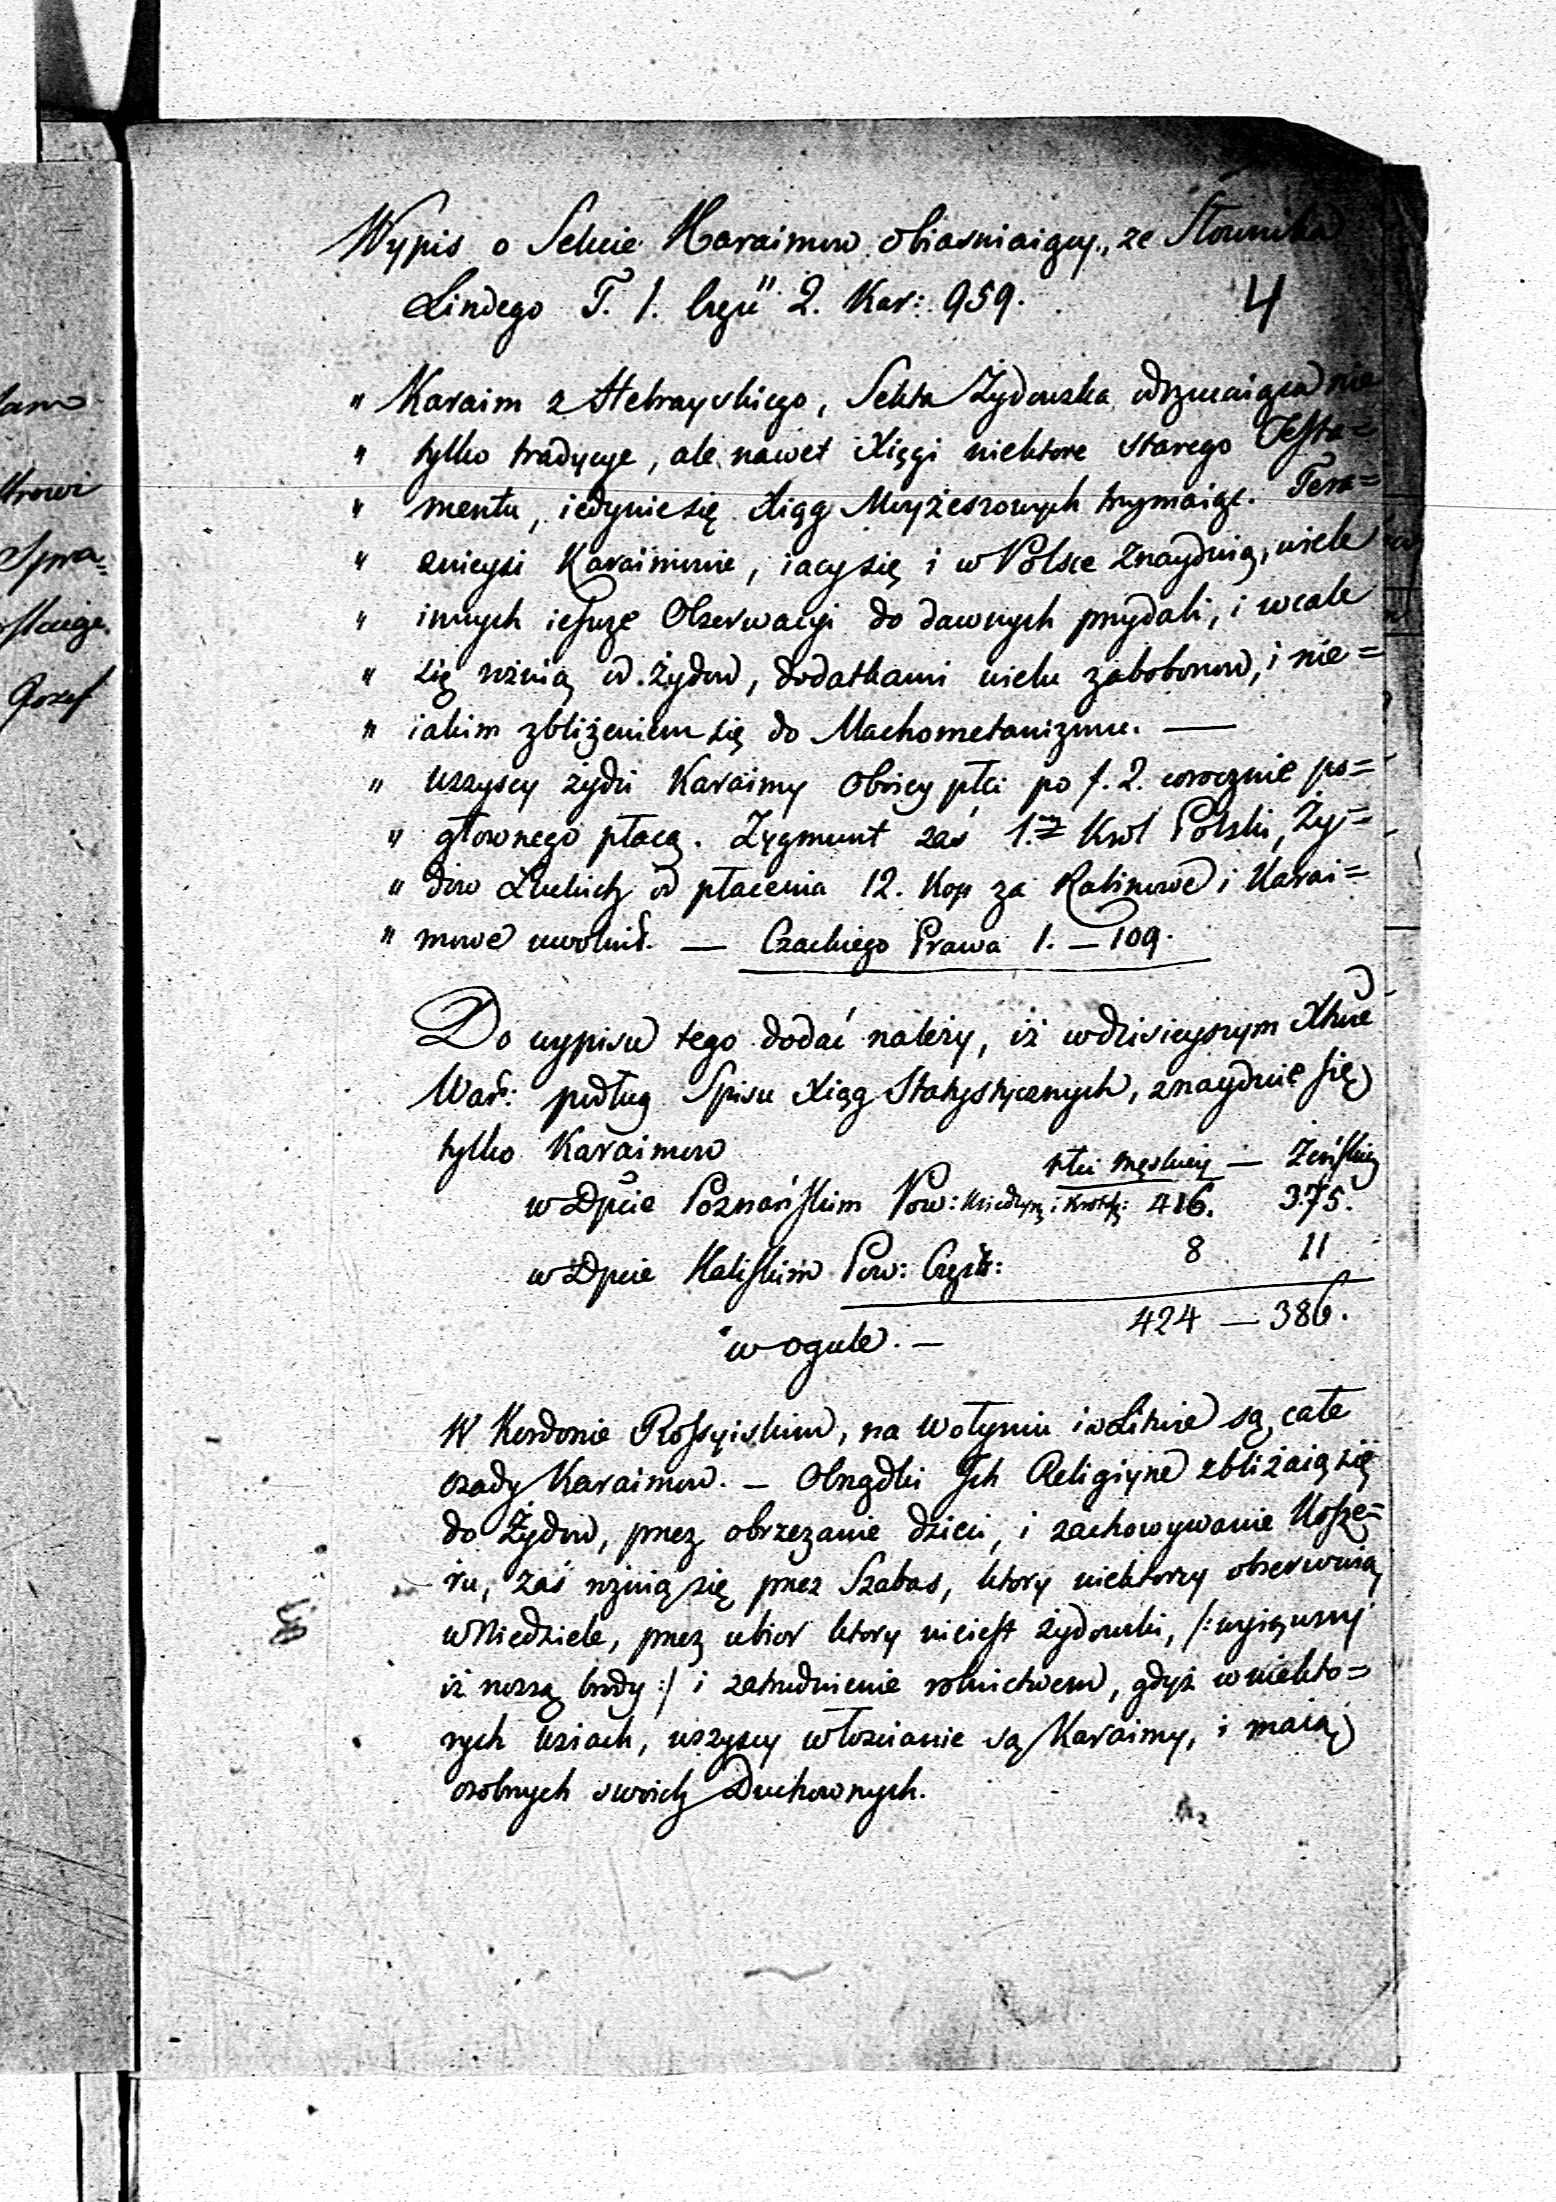 Wypis o Sekcie Karaimow obiasniaiący, ze Słownika
Lindego T. 1. Częś" 2. Kar: 959.
4
" Karaim z Hebrayskiego, Sekta Żydowska odrzucaiąca nie
" tylko tradycye, ale nawet Xięgi niektore starego Testa=
" mentu, iedynie się Xiąg Moyżeszowych trzymaiąc. Tera=
" znieysi Karaimowie, iacy się i w Polsce znayduią, wiele
" innych ieszcze Obserwacyi do dawnych przydali, i wcale
" się rożnią od Żydow, dodatkami wielu zabobonow, i nie=
" iakim zbliżeniem się do Machometanizmu. —
" wszyscy żydzi Karaimy Oboiey płci po f. 2. corocznie po=
" głownego płacą. Zygmunt zaś 1.szy Krol Polski, Ży=
" dow Łuckich od płacenia 12. Kop za Rabinowe i Karai=
" mowe uwolnił. — Czackiego Prawa 1. — 109.
Do wypisu tego dodać należy, iż w dzisieyszym Xtwie
War: podług Spisu Xiąg Statystycznych, znayduie się
tylko Karaimow
płci męskiey — Żeńskiey
w Dpcie Poznańskim Pow: Miedzyrz: i Krobsk: 416. 375.
w Dpcie Kaliskim Pow: Częst: 8 11
w ogule. — 424 — 386.
W Kordonie Rossyiskim, na Wołyniu i w Litwie są całe
osady Karaimow. — Obrządki Ich Religiyne zbliżaią się
do Żydow, przez obrzezanie dzieci, i zachowywanie Kosze=
ru, zaś rożnią się przez Szabas, ktory niektorzy obserwuią
w Niedziele, przez ubior ktory nie iest żydowski, /: wyiąwszy
iż noszą brody :/ i zatrudnienie rolnictwem, gdyż w niekto=
rych wsiach, wszyscy włoscianie są Karaimy, i maią
osobnych swoich Duchownych.